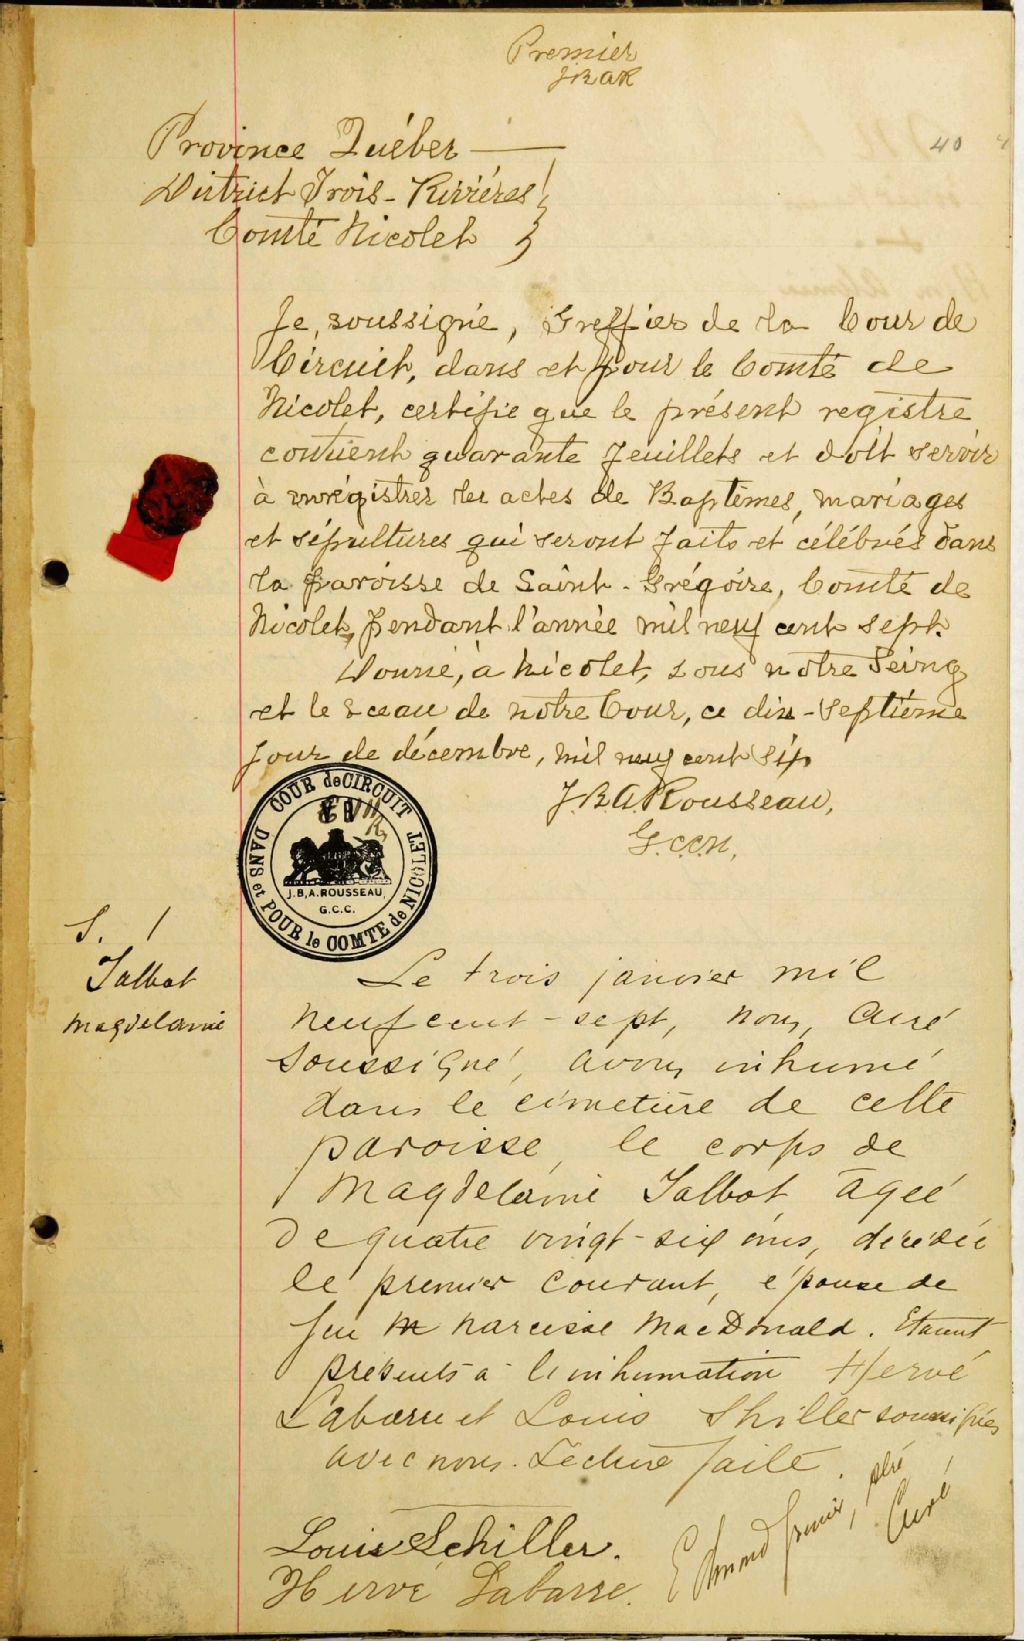 Premier
JBAR
40
Province Québec
District Trois-Rivières
Comté Nicolet
Je, soussigné, Greffier de la Cour de
Circuit, dans et pour le Comté de
Nicolet, certifie que le présent registre
contient quarante feuillets et doit servir
à enrégistrer les actes de Baptêmes, mariages
et sépultures qui seront faits et célébrés dans
la paroisse de Saint-Grégoire, Comté de
Nicolet, pendant l'année mil neuf cent sept.
Donné, à Nicolet, sous notre Seing
et le sceau de notre Cour, ce dix-septième
jour de décembre, mil neuf cent six
J.B.A. Rousseau,
G.C.C.N.
COUR de CIRCUIT
DANS et POUR le COMTE de NICOLET
J.B.A. ROUSSEAU
G.C.C.
S. 1
Talbot
Magdelaine
Le trois janvier mil
neuf cent-sept, nous, Curé
soussigné, avons inhumé
dans le cimetière de cette
paroisse, le corps de
Magdelaine Talbot, âgée
de quatre vingt-six ans, décédée
le premier courant, épouse de
feu M Narcisse MacDonald. Etaient
présents à l'inhumation Hervé
Labarre et Louis Shiller soussignés
avec nous. Lecture faite.
Louis Schiller.
Hervé Labarre.
Edmond Grenier, ptre
Curé